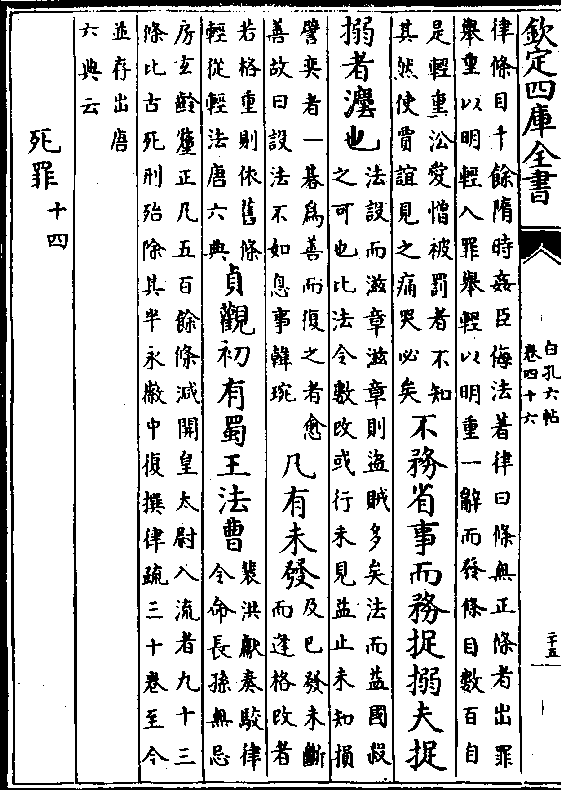 欽定四庫全書
白孔六帖
卷四十六
二十五
律條目千餘隋時姦臣侮法著律曰條無正條者出罪
舉重以明輕入罪舉輕以明重一辭而發條目數百自
是輕重沿愛憎被罰者不知
其然使賈誼見之痛哭必矣
不務省事而務捉搦夫捉
搦者灋也
法設而滋章滋章則盜賊多矣法而益國設
之可也比法令數改或行未見益止未知損
譬奕者一棊爲善而復之者愈
善故曰設法不如息事韓琬
凡有未發
及已發未斷
而逢格改者
若格重則依舊條
輕從輕法唐六典
貞觀初有蜀王法曹
裴洪獻奏駮律
令命長孫無忌
房玄齡釐正凡五百餘條減開皇太尉入流者九十三
條比古死刑殆除其半永徽中復撰律疏三十卷至今
並存出唐
六典云
死罪
十四